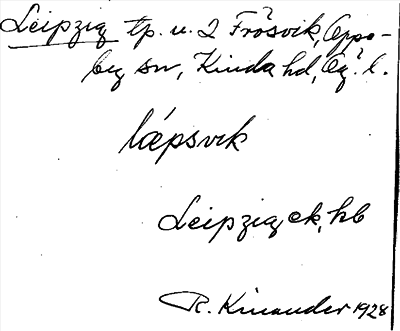 Leipzig tp. u. 2 Frösvik, Oppe-
by sn, Kinda hd, Ög. l.
læpsvik
Leipzig ek, hb
R. Kinander 1928